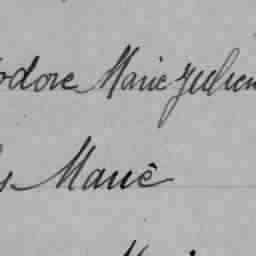 odore Marie Julien
Marie